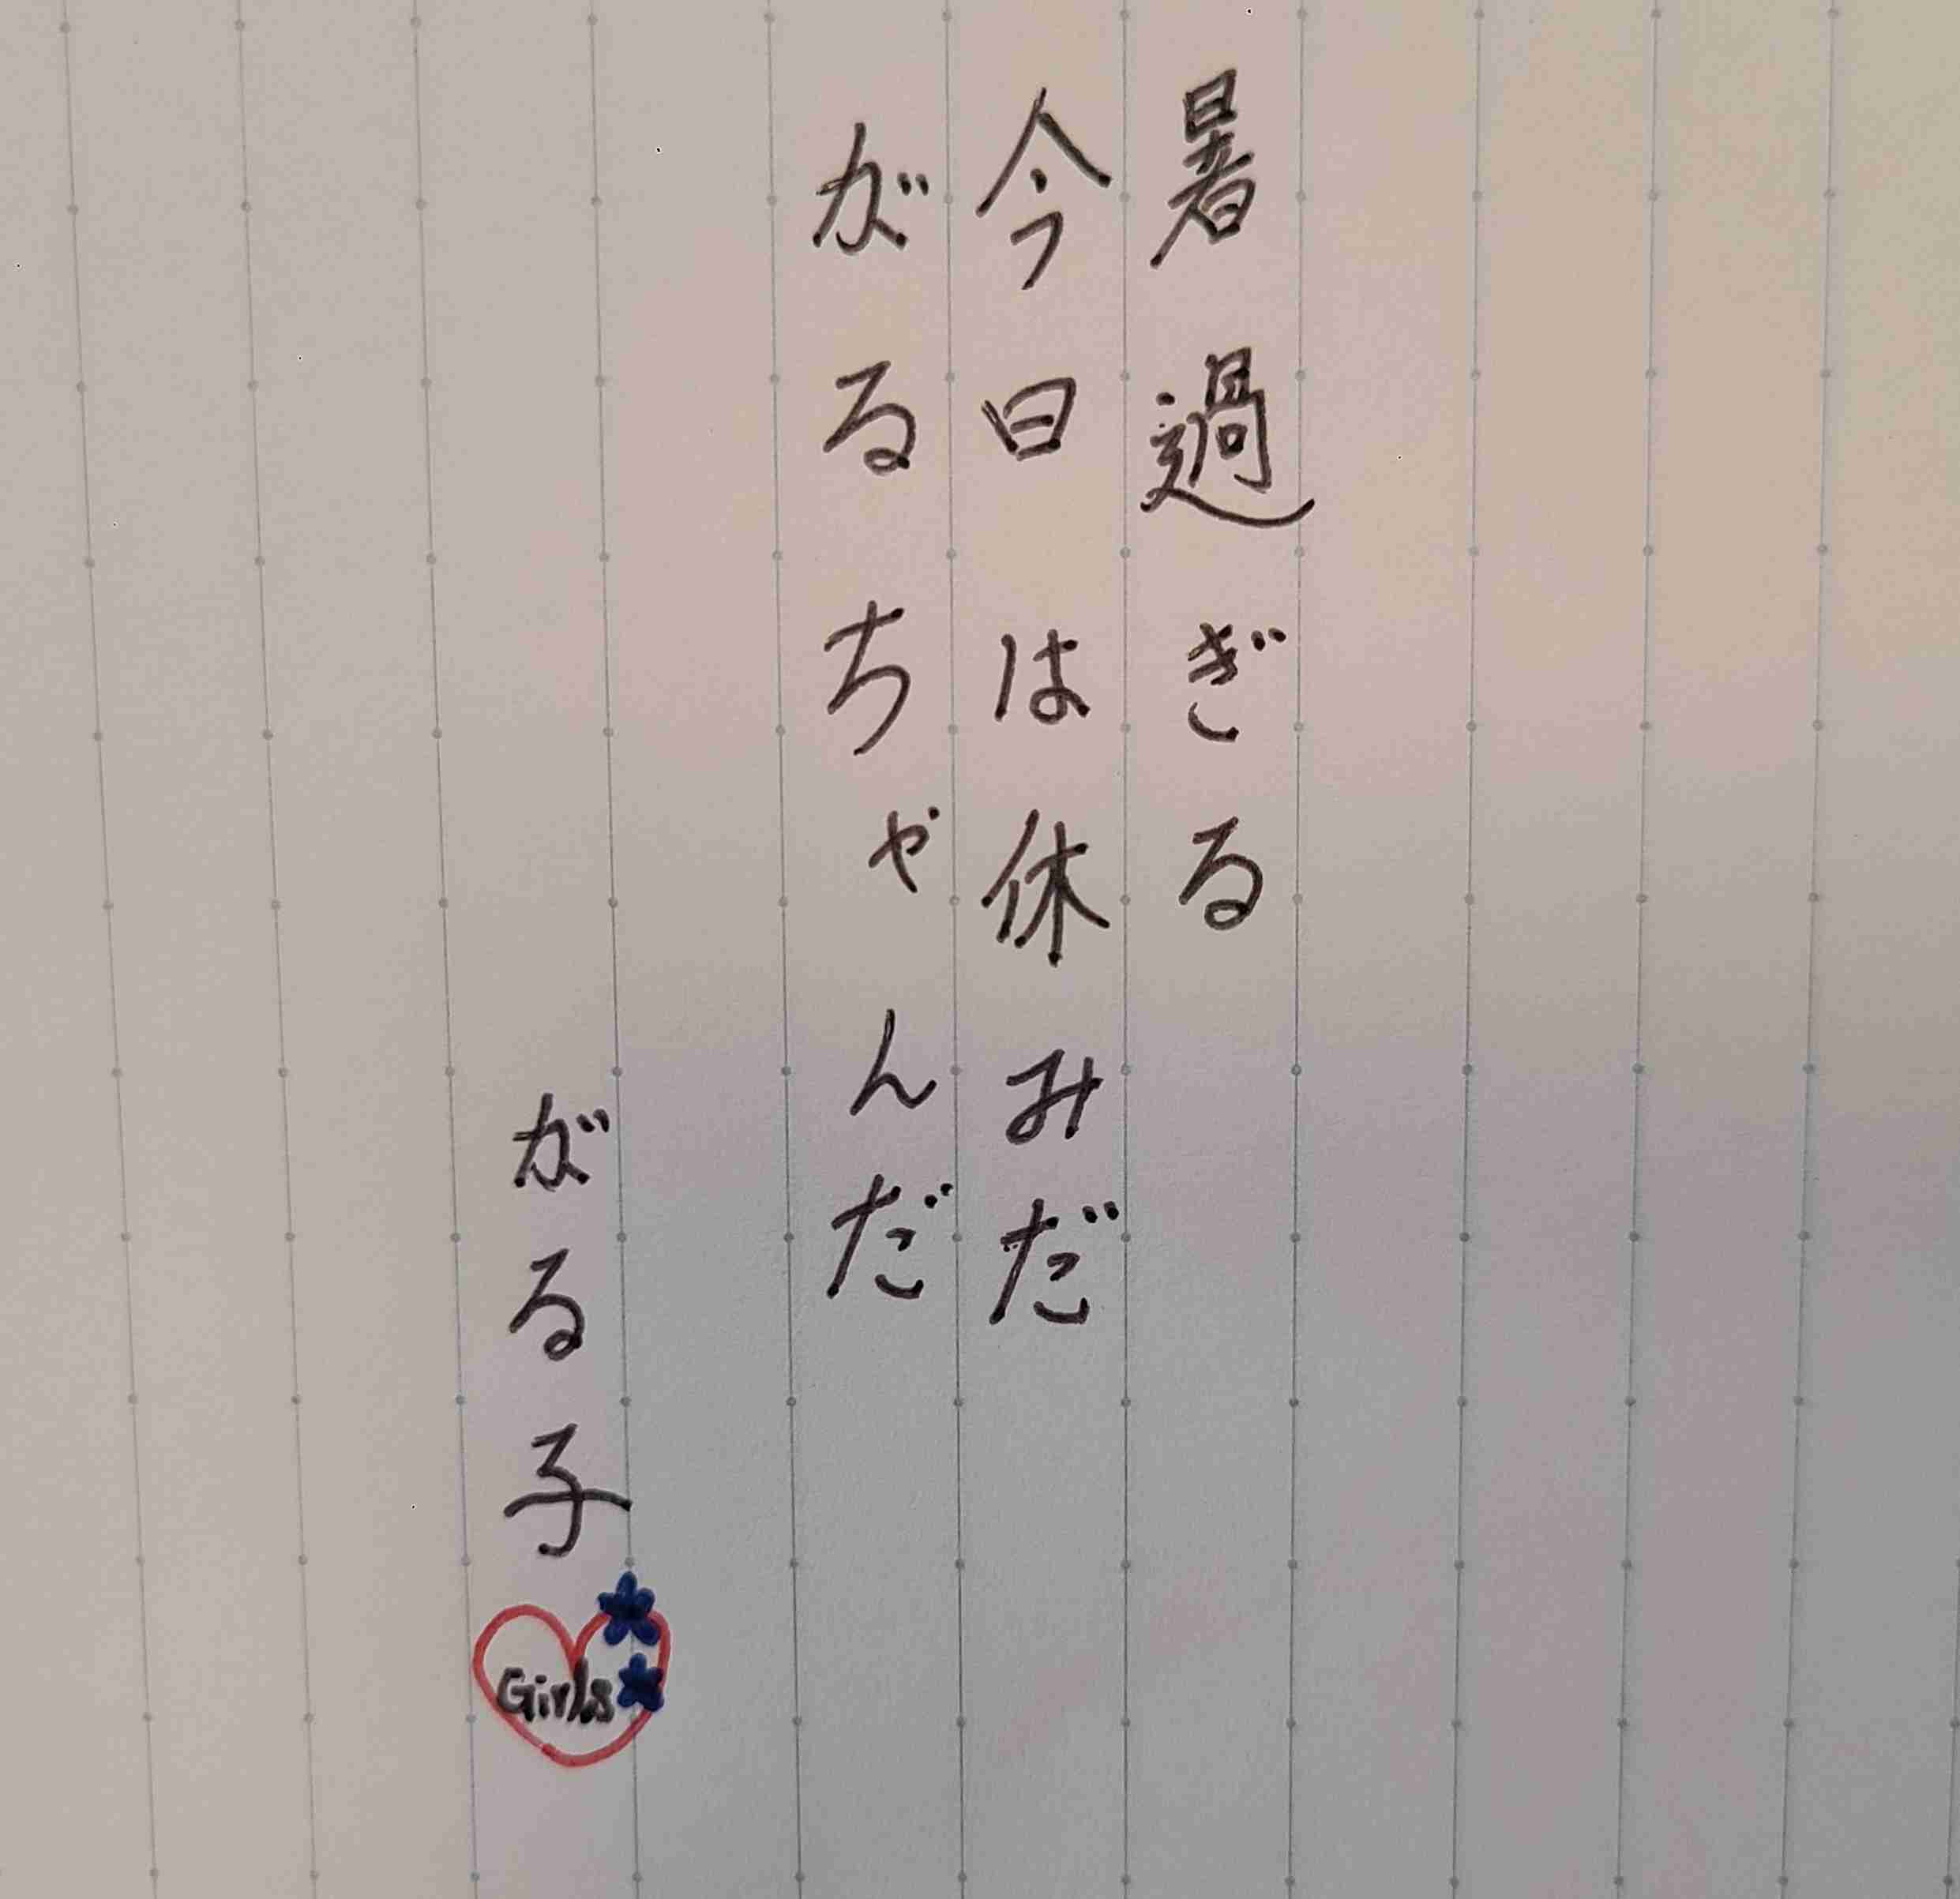 暑過ぎる
今日は休みだ
がるちゃんだ
がる子
Girls